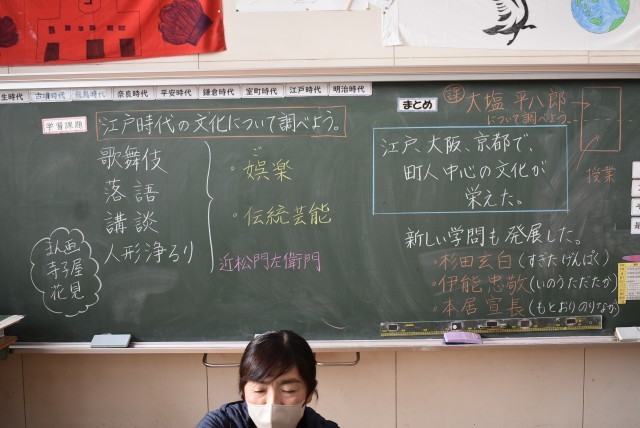 生時代 古墳時代 飛鳥時代 奈良時代 平安時代 鎌倉時代 室町時代 江戸時代 明治時代
学習課題
江戸時代の文化について調べよう。
歌舞伎
落語
講談
人形浄るり
・娯楽
ご
・伝統芸能
近松門左衛門
寺子屋
花見
まとめ
課 大塩 平八郎
について調べよう。
授業
江戸、大阪、京都で、
町人中心の文化が
栄えた。
新しい学問も発展した。
・杉田玄白(すぎたげんぱく)
・伊能忠敬(いのうただたか)
・本居宣長(もとおりのりなが)